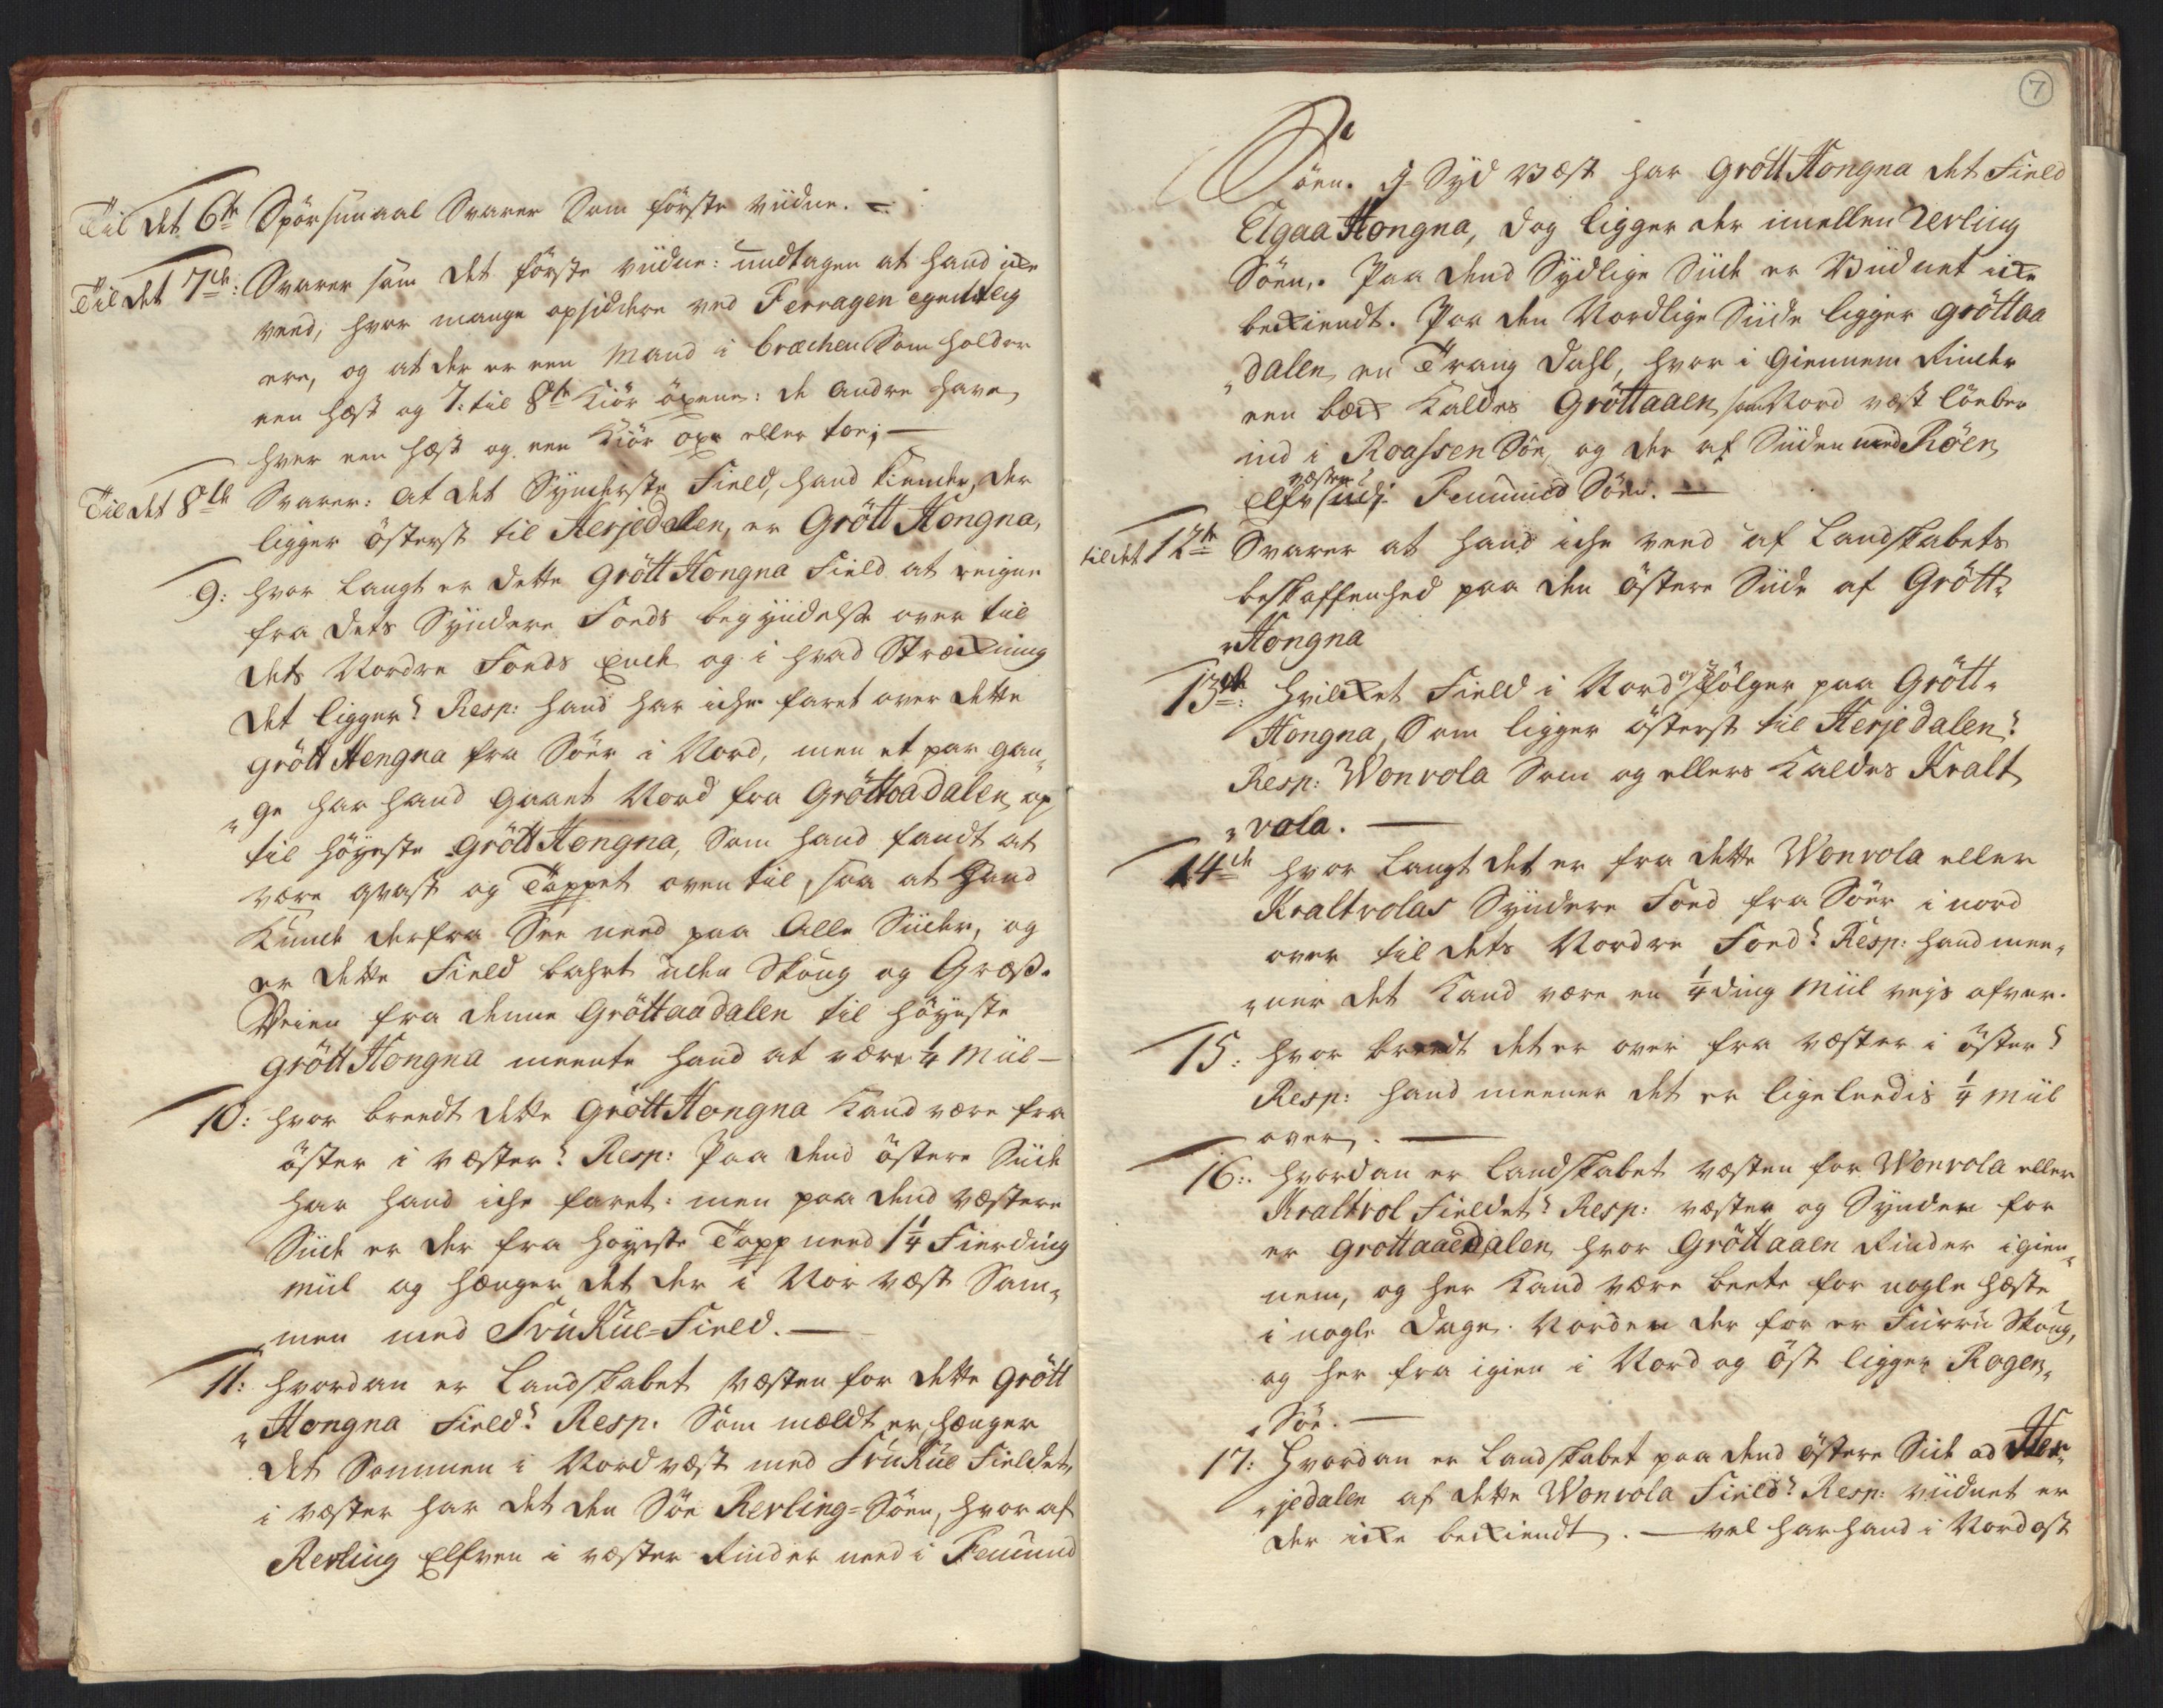 Til det 6te Spörsmaal Svarer Som förste viidne. –
Til det 7de: Svarer som det förste viidne: undtagen at hand icke
veed, hvor mange opsiddere ved Ferragen egentlig
ere, og at der er een Mand i bræcken Som holder
een hæst og 7: til 8te Kiör öxene: de andre have
hver een hæst og een Kiör oxe eller toe; —
Til det 8de Svarer: at det Synderste Field, hand kiender, der
ligger österst til Herjedalen, er Grött Hongna,
9: hvor langt er dette Grött Hongna Field at reigne
fra dets Syndere Foeds begyndelse over til
dets Nordre Foeds Ende og i hvad Strækning
det ligger? Resp: hand har iche faret over dette
Grött Hengna fra Söer i Nord, men et par gan„
„ge har hand gaaet Nord fra Gröttoadalen op
til höyeste Grött Hongna, Som hand fandt at
være qvast og Toppet oven til, saa at Hand
Kunde derfra See need paa Alle Siider, og
er dette Field bahrt uden Skoug og Græs.
Veien fra denne Gröttaadalen til höyeste
Grött Hongna meente hand at være 1/4 Miil –
10: hvor breedt dette Grött Hongna Kand være fra
öster i væster? Resp: Paa dend östere Siide
har hand iche faret: men paa dend væstere
Siide er der fra höyeste Topp need 1 1/4 Fierding
miil og hænger det der i Nor væst Sam„
„men med SvuKue=Field. —
11: hvordan er Landskabet væsten for dette Grött
„Hongna Field? Resp. Som mældt er, hænger
det Sammen i Nordvæst med SvuKue Fieldet,
i væster har det den Söe Revling=Söen, hvor af
Revling Elfven i væster Rinder need i Femund
7
Söen. I Syd Væst har Grött Hongna det Field
Elgaa Hongna, dog ligger der imellem Revling
Söen. Paa dend Sydlige Siide er Viidnet icke
beckiendt. Paa den Nordlige Siide ligger Gröttaa
„dalen en Trang Dahl, hvor i Giennem Rinder
een beck Kaldes Gröttaaen, som Nord væst löeber
ind i Roassen Söe, og der af Siiden med Röen
væster
Elfv ind i Femund Söen. —
til det 12te Svarer at hand iche veed af Landskabets
beskaffenhed paa den östere Siide af Grött„
„Hongna
13de: hvilcket Field i Nord fölger paa Grött„
Hongna, Som ligger österst til Herjedalen?
Resp: Wonvola Som og ellers Kaldes Kralt
„vola. —
14de hvor langt det er fra dette Wonvola eller
Kraltvolas Syndere Foed fra Söer i nord
over til dets Nordre Foed? Resp: hand mee„
„ner det Kand være en 1/4ding Miil vejs ofver.
15: hvor breedt det er over fra væster i öster?
Resp: hand meener det er ligeleedis 1/4 miil
over. —
16: hvordan er Landskabet væsten for Wonvola eller
Kraltvol Fieldet? Resp: væster og Synden for
er Grottaaedalen, hvor Gröttaaen Rinder igien„
nem, og her Kand være beete for nogle hæste
i nogle Dage. Norden der for er Furru Skoug,
og her fra igien i Nord og öst ligger Rogen„
„Söe. —
17: Hvordan er Landskabet paa dend östere Side ad Her„
„jedalen af dette Wonvola Field? Resp: viidnet er
der icke beckiendt. — vel har hand i Nordost